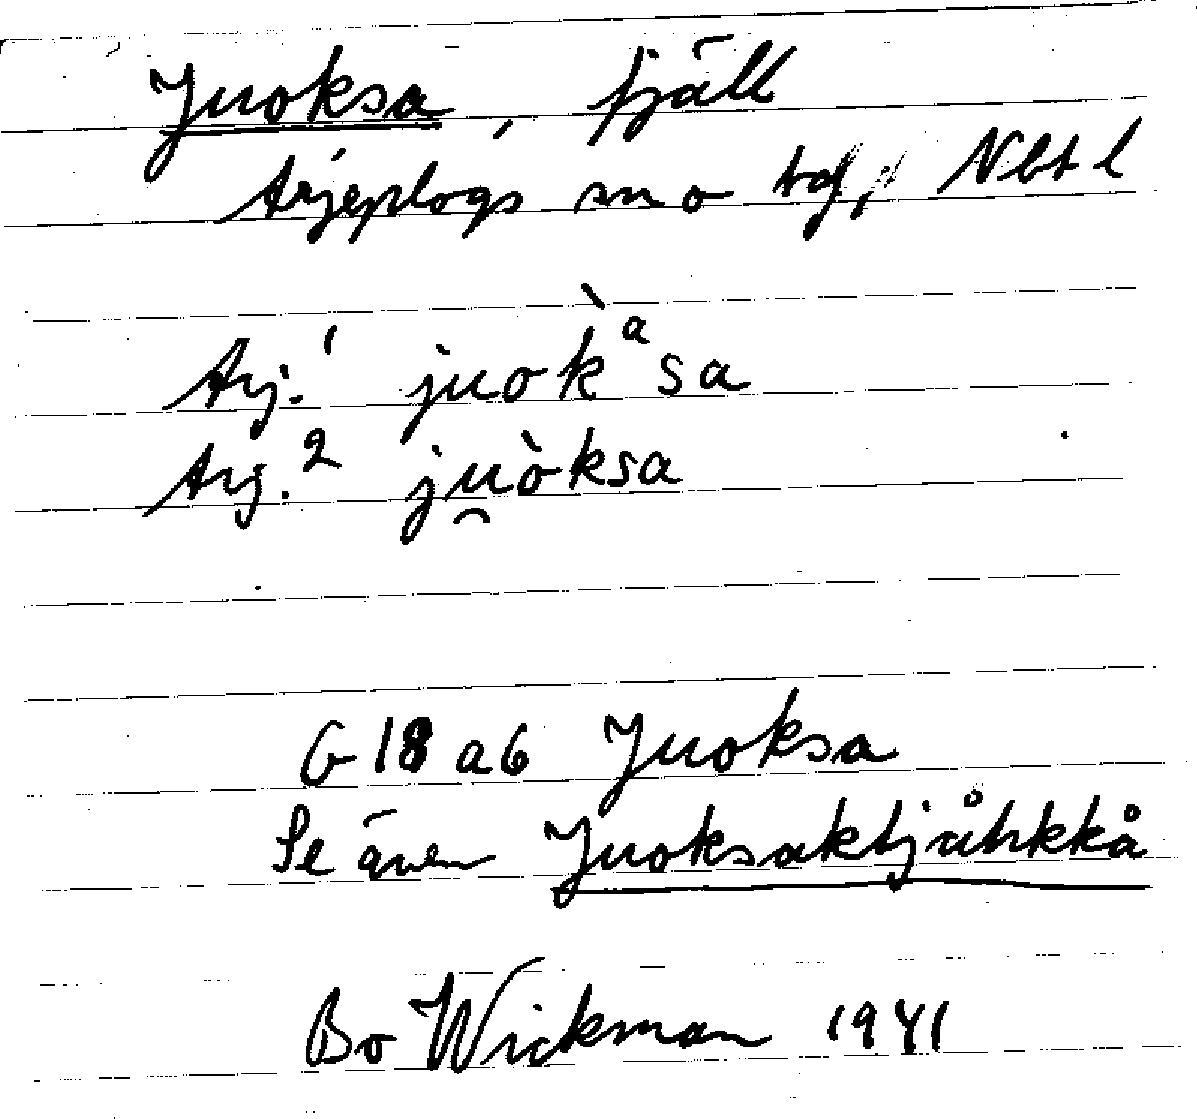 Juoksa, fjäll
Arjeplogs sn o tg, Nbt l
Arj.¹ juok̀ᵃsa
Arj.² ju̯òksa
G 18 a b Juoksa
Se även Juoksaktjåhkkå
Bo Wickman 1941